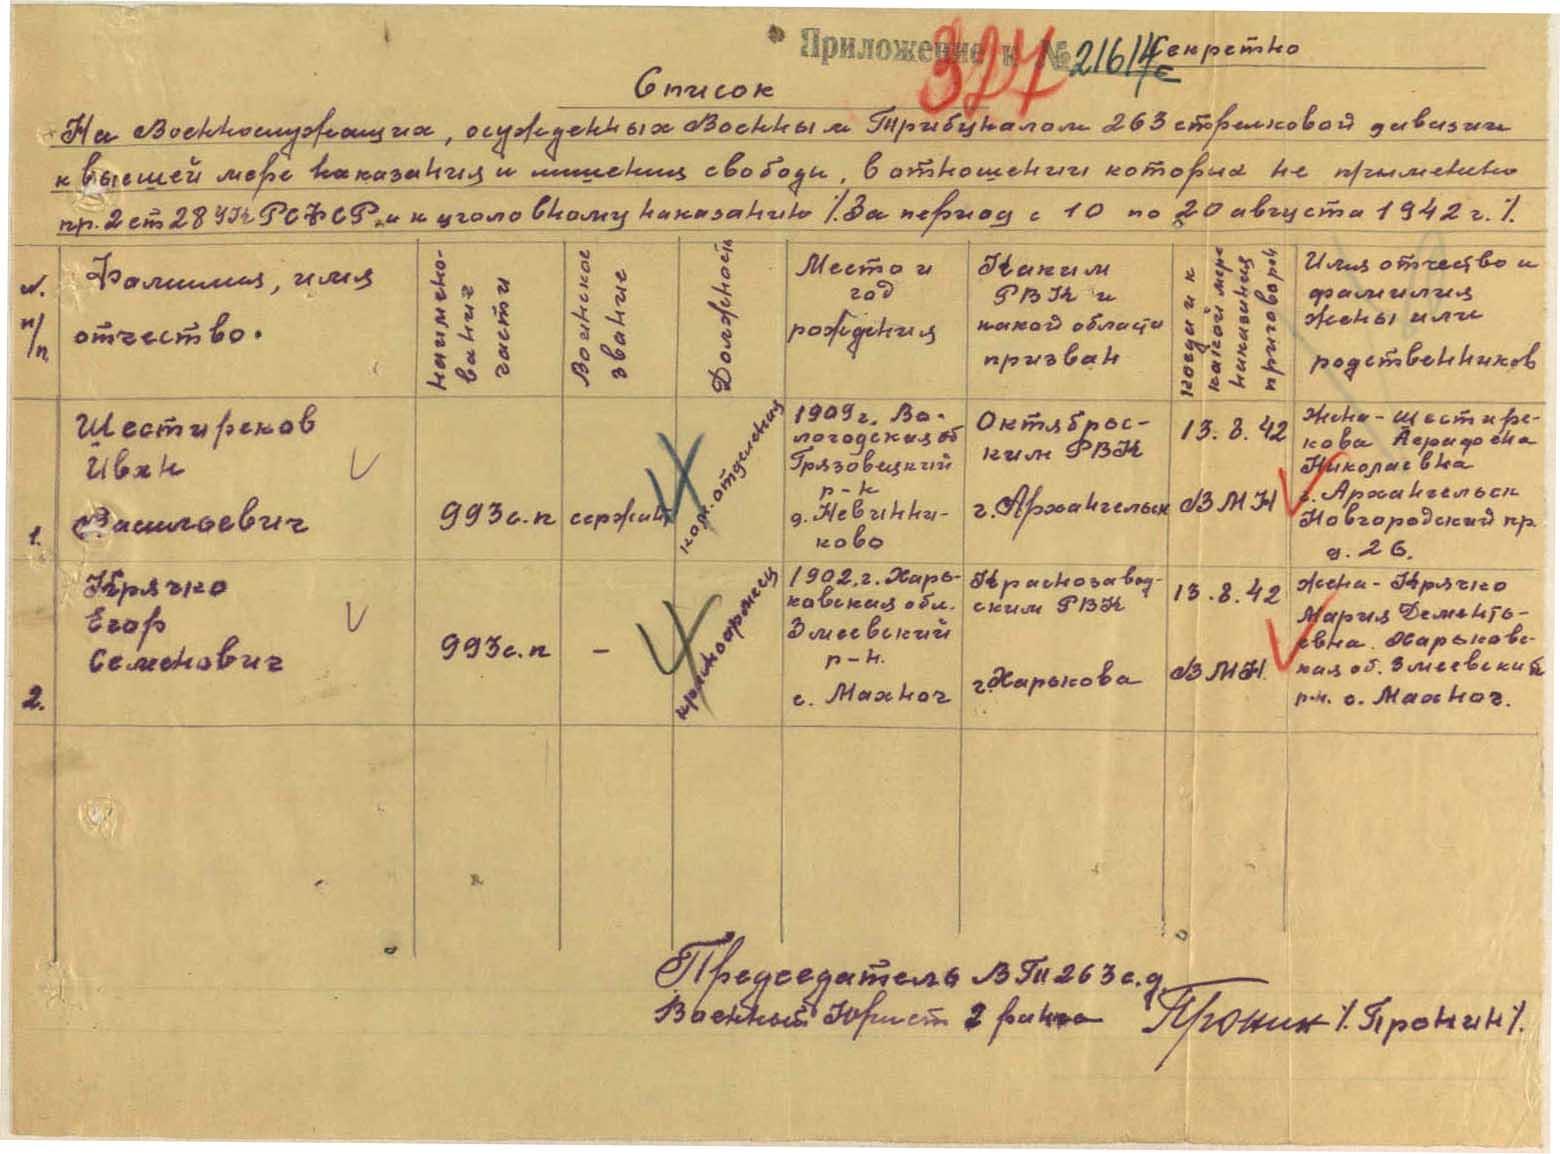 Приложение к № 21614с Секретно
327
Список
На Военнослужащих, осужденных Военным Трибуналом 263 стрелковой дивизии
к высшей мере наказания и лишения свободы, в отношении которых не применено
пр. 2 ст 28 УК РСФСР и к уголовному наказанию /. За период с 10 по 20 августа 1942 г. /.
N. п/п
Фамилия, имя отчество.
наимено-вание части
Воинское звание
Должность
Место и год рождения
Каким РВК и какой области призван
когда и к какой мере никазания приговорен
Имя отчество и фамилия жены или родственников
1.
Шестиреков
Иван
Васильевич
993 с.п
сержант
ком. отделения
1909 г. Во-
логодская об
Грязовецкий
р-н
д. Невинни-
ково
Октябрьс-
ким РВК
г. Архангельск
13.8.42
ВМН
Жена - Шестире-
кова
Николаевна
г. Архангельск
Новгородский пр.
д. 26.
2.
Крячко
Егор
Семенович
993 с.п
–
красноармеец
1902. г. Харь-
ковская обл.
Змеевский
р-н.
с. Махноч
Краснозавод-
ским РВК
г. Харькова
13.8.42
ВМН.
Жена - Крячко
Мария Дементь-
евна. Харьковс-
кая об. Змеевский
р-н. с. Махноч.
Председатель ВТ 263 с.д.
Военный Юрист 2 ранга Пронин /. Пронин /.